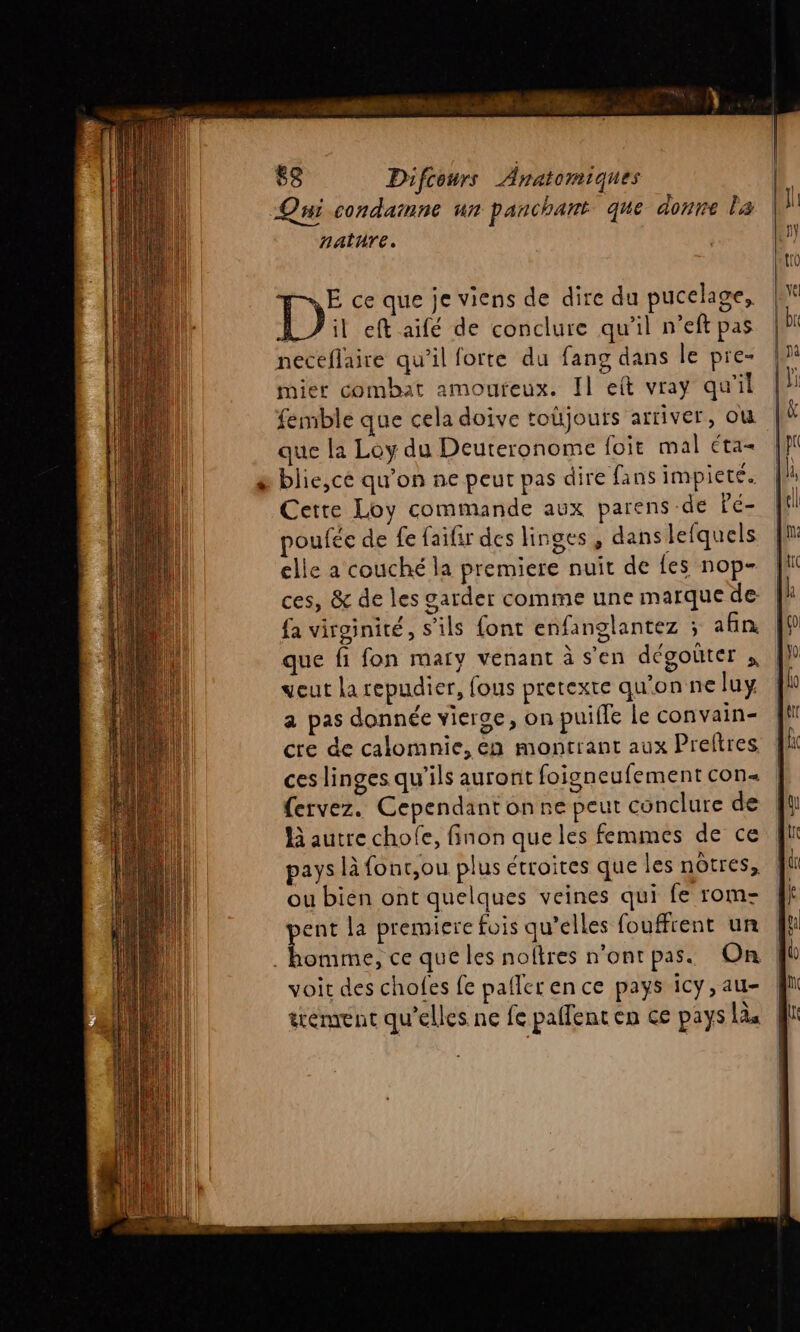 88 Difcours Anatomiques
Qui condamne un panchant que donne la
nature.
DE ce que je viens de dire du pucelage,
il eſt aiſé de conclure qu'il n'eſt pas
neceſſaire qu'il ſorte du ſang dans le pre-
mier combat amoureux. Il eſt vray qu'il
ſemble que cela doive toûjours arriver, ou
que la Loy du Deuteronome ſoit mal éta-
blie,ce qu'on ne peut pas dire ſans impieté.
Cette Loy commande aux parens de l'é-
pouſée de ſe ſaiſir des linges, dans leſquels
elle a couché la premiere nuit de ſes nop-
ces, & de les garder comme une marque de
ſa virginité, s'ils ſont enſanglantez ; afin
que ſi ſon mary venant à s'en dégoûter,
veut la repudier, ſous pretexte qu'on ne luy
a pas donnée vierge, on puiſſe le convain-
cre de calomnie, en montrant aux Preſtres
ces linges qu'ils auront ſoigneuſement con-
ſervez. Cependant on ne peut conclure de
là autre choſe, ſinon que les femmes de ce
pays là ſont,ou plus étroites que les nôtres,
ou bien ont quelques veines qui ſe rom-
pent la premiere fois qu'elles ſouffrent un
homme, ce que les noſtres n'ont pas. On
voit des choſes ſe paſſer en ce pays icy, au-
trement qu'elles ne ſe paſſent en ce pays là.